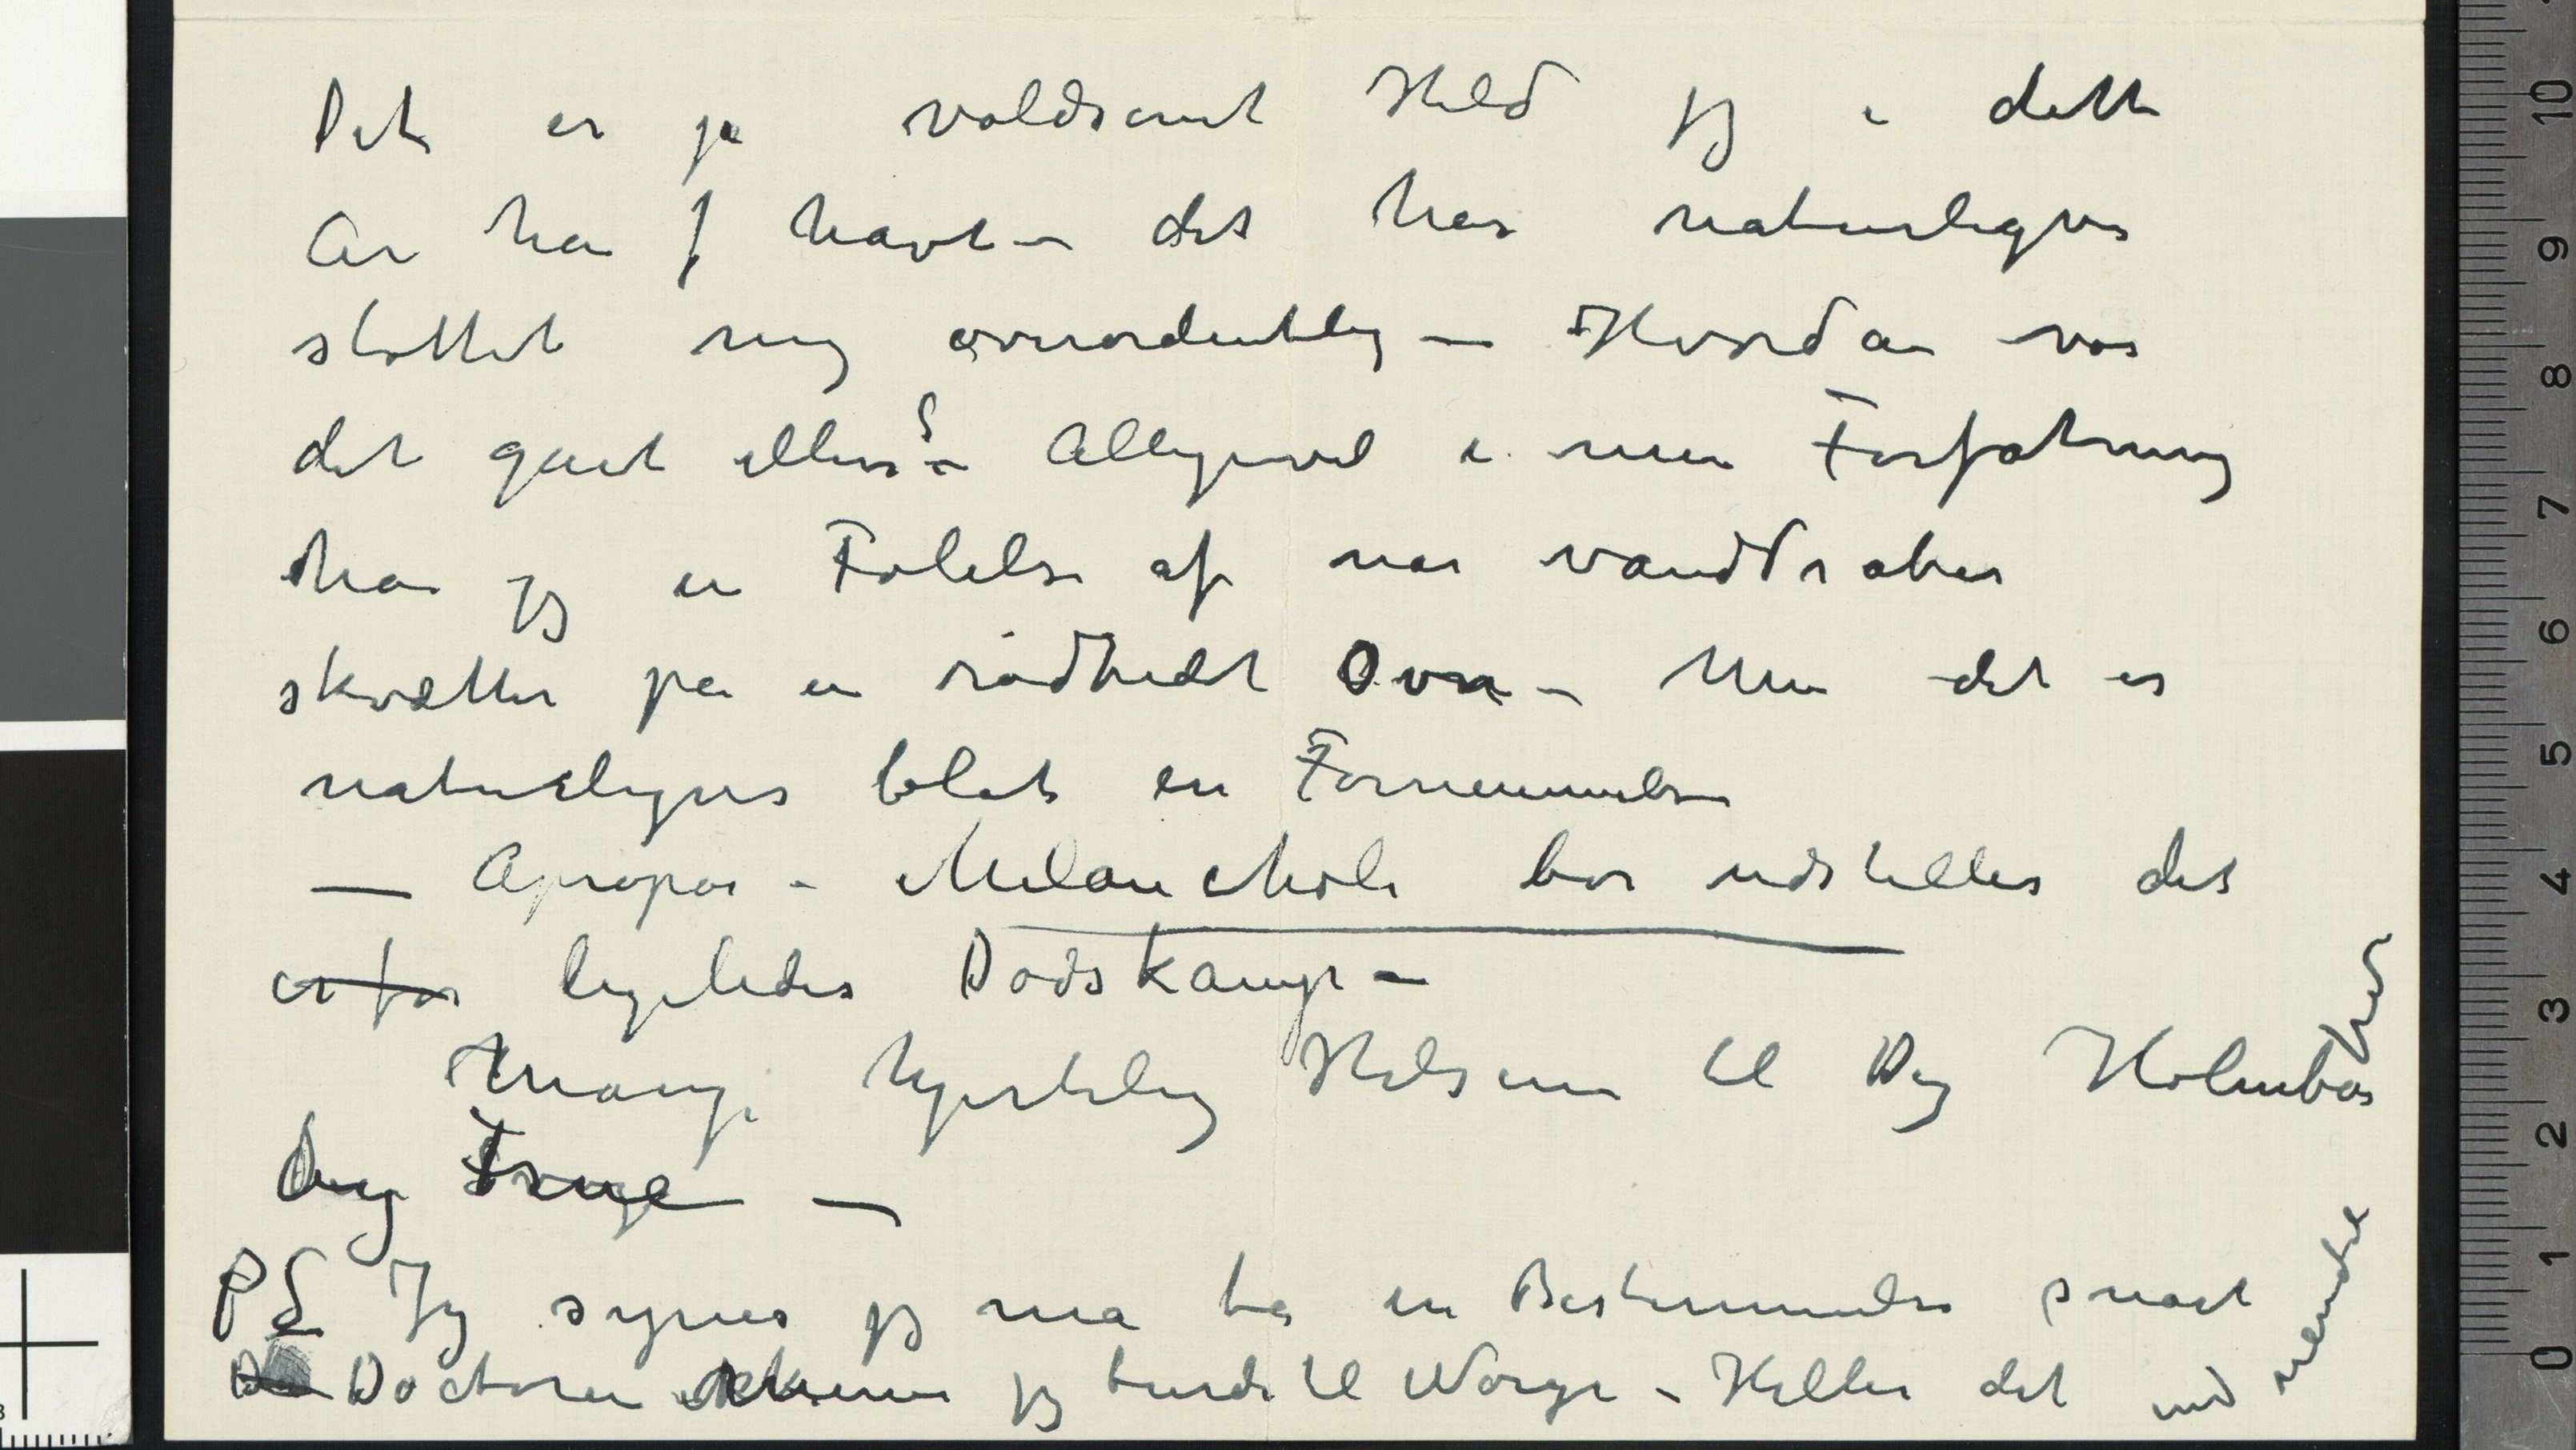 Det er jo voldsomt Held jeg i dette
År har J havt – det har naturligvis
støttet mig overordentlig – Hvordan var
det gået ellers? – Alligevel i min Forfatning
har jeg en Følelse af når vanddråber
skvætter på en rødhedt Ovn – Men det er
naturligvis blot en Fornemmelse
– Apropos – Melancholi bør udstilles det
er for ligeledes Dødskamp –
Mange hjertelig Hilsener til Dig Holmboe
PS Jeg synes jeg må ta en Bestemmelse snart
Doctoren jeg burde til Norge – Heller det
end